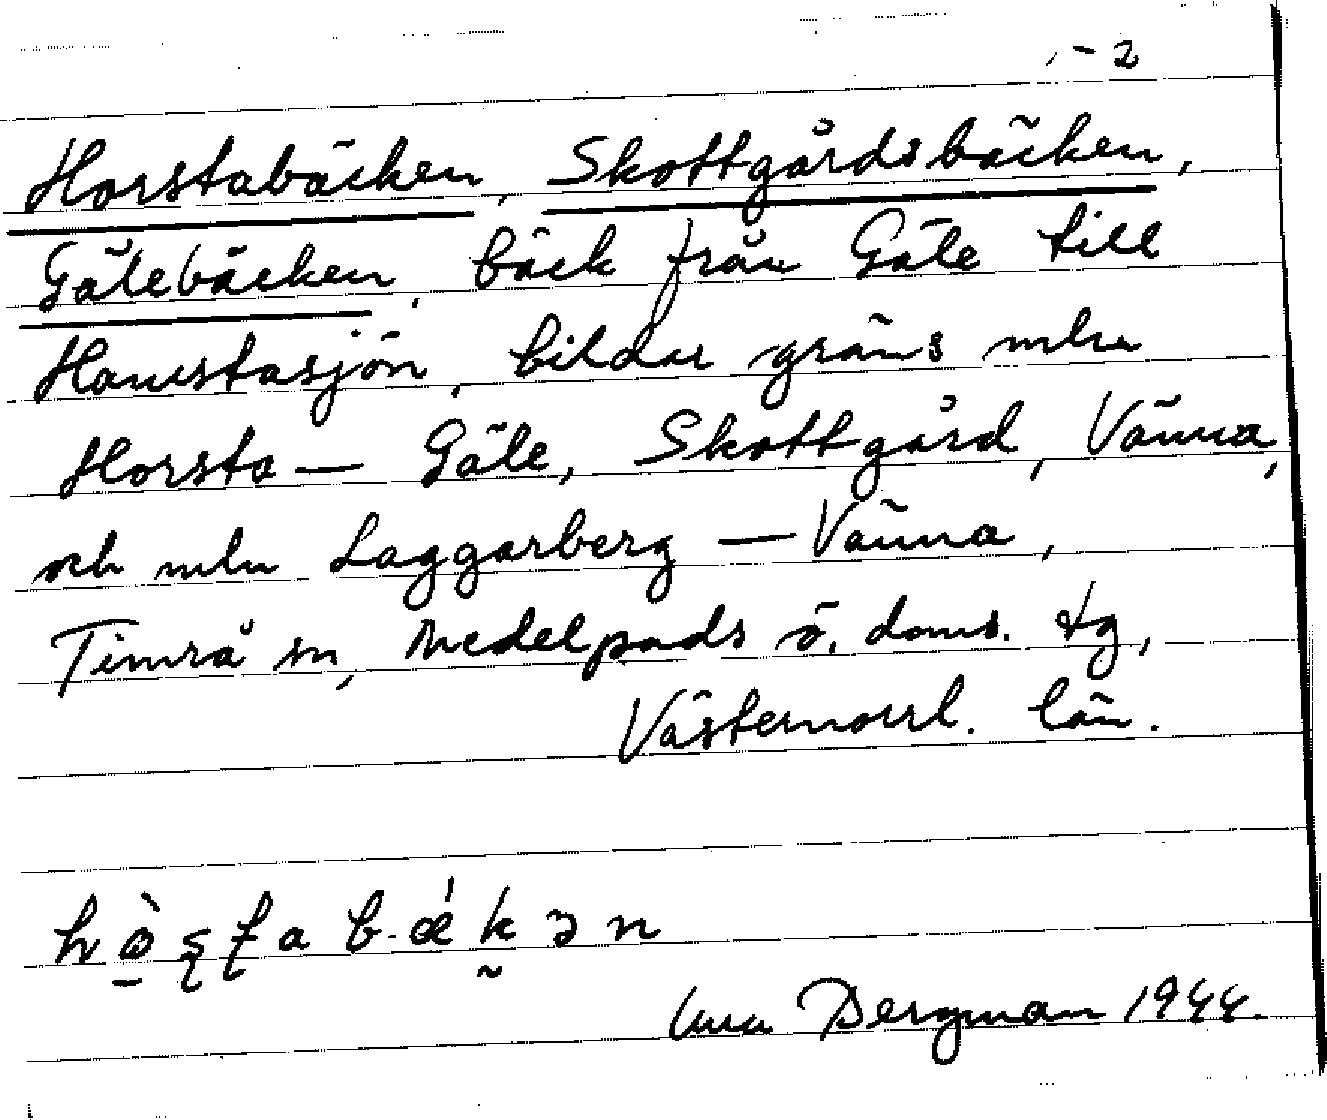 1-2
Horstabäcken, Skottgårdsbäcken,
Gälebäcken, bäck från Gäle till
Hamstasjön, bildar gräns mln
Horsta — Gäle, Skottgård, Vänna,
och mln Laggarberg — Vänna,
Timrå sn, Medelpads ö. doms. tg,
Västernorrl. län.
Bergman 1944.